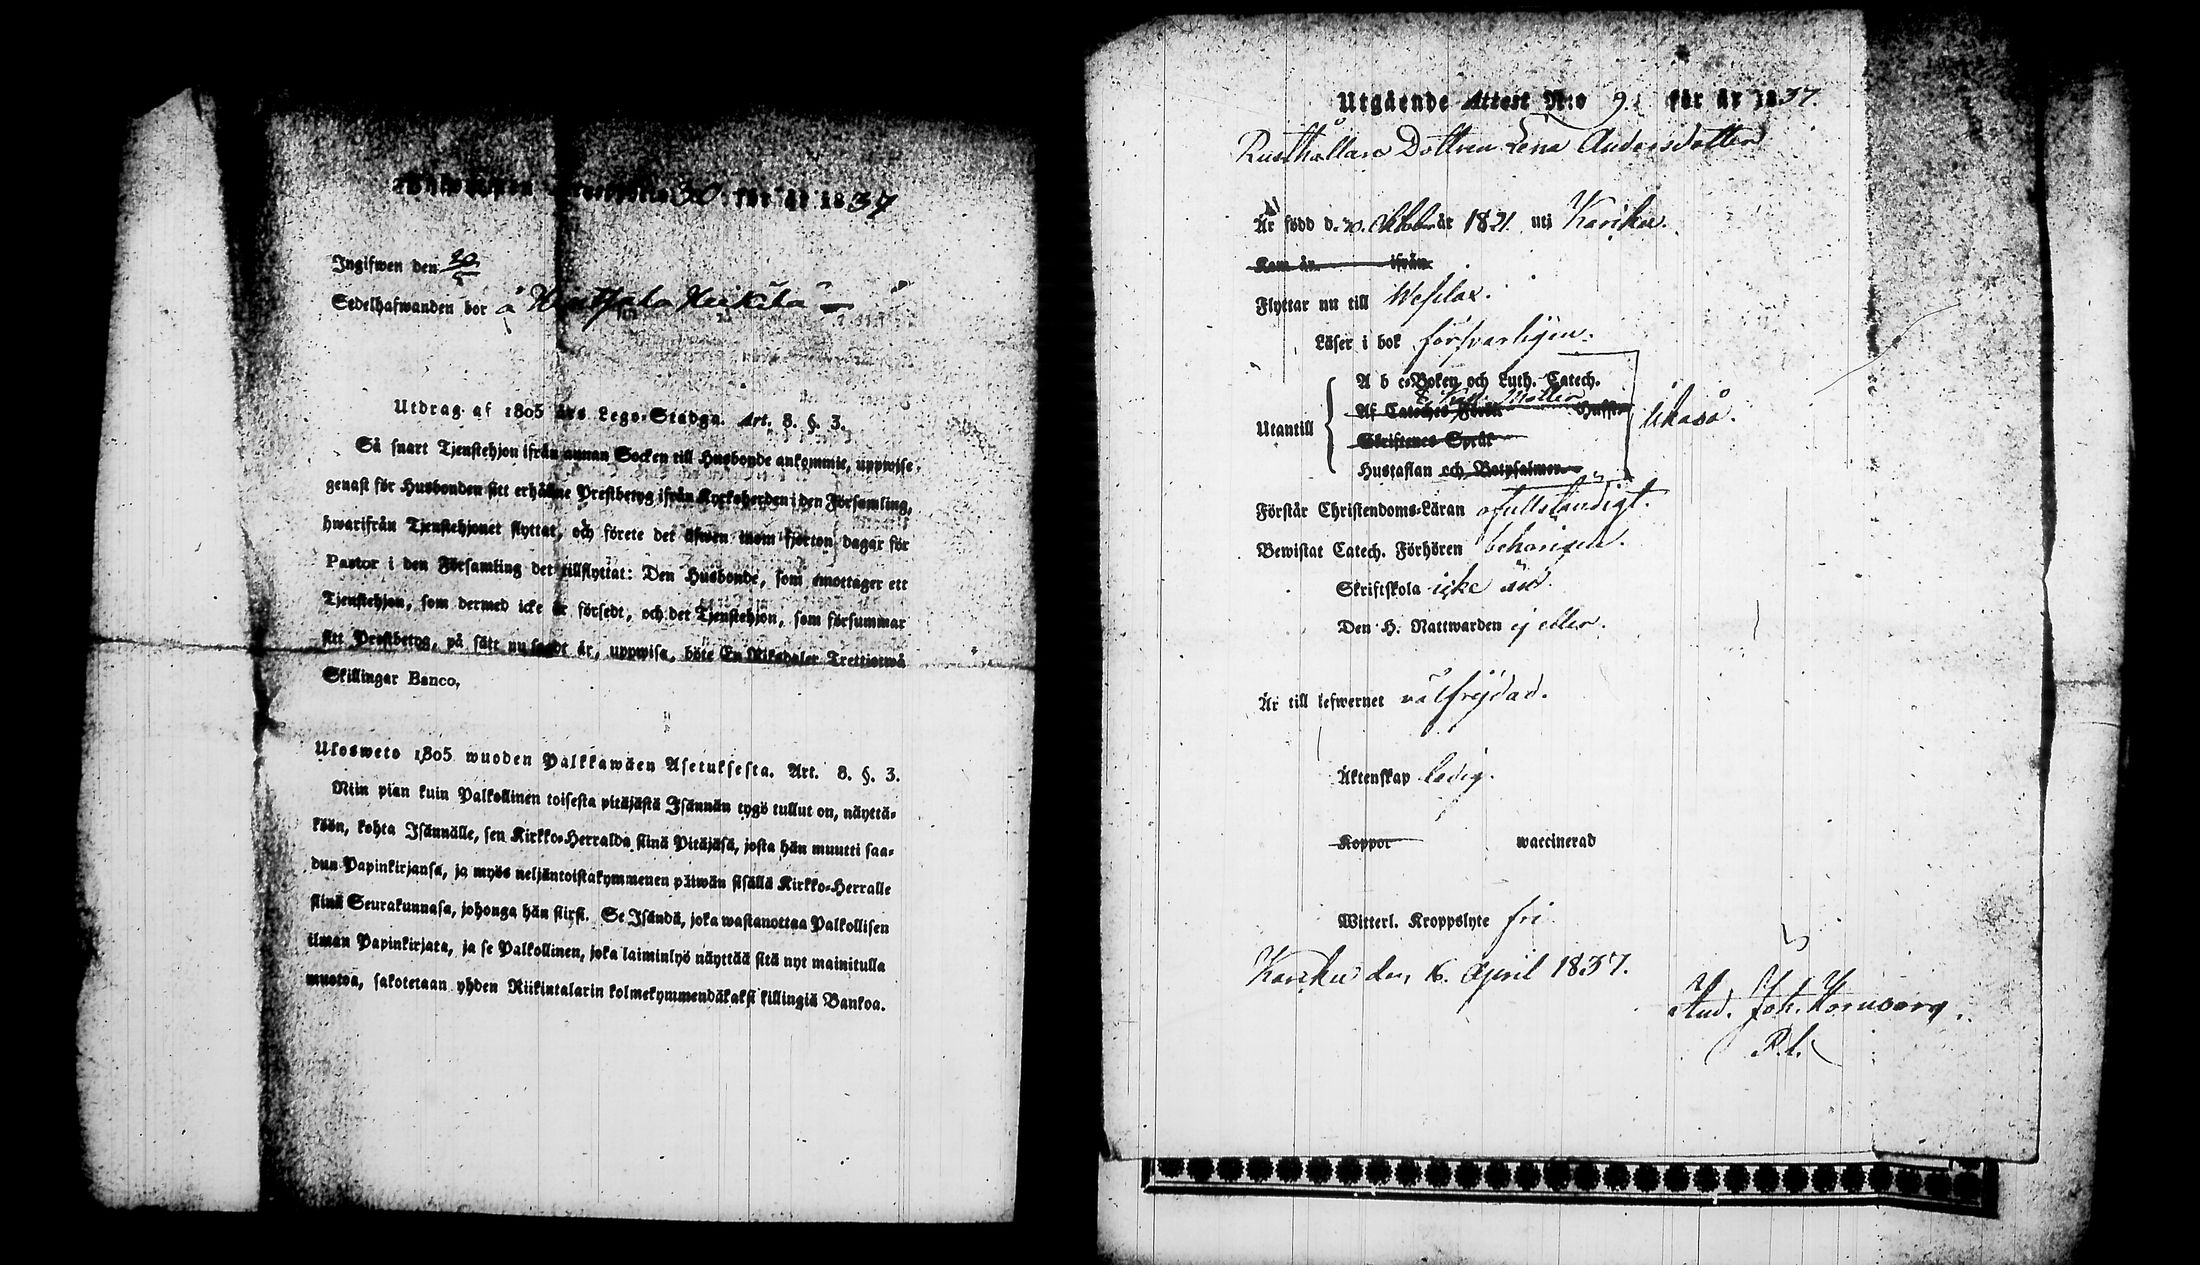 30 för år 1837
Ingifwen den 20/5
Sedelhafwanden bor å
Utdrag af 1805 års Lego-Stadga. Art. 8. §. 3.
Så snart Tjenstehjon ifrån annan Socken till Husbonde ankommit, uppwise
genast för Husbonden sitt erhållne Prestbetyg ifrån Kyrkoherden i den Församling,
hwarifrån Tjenstehjonet flyttat, och förete det äfwen inom fjorton dagar för
Pastor i den Församling det tillflyttat: Den Husbonde, som emottager ett
Tjenstehjon, som dermed icke är försedt, och det Tjenstehjon, som försummar
sitt Prestbetyg, på sätt nu sagdt är, uppwisa, böte En Riksdaler Trettiotwå
Skillingar Banco,
Ulosweto 1805 wuoden Palkkawäen Asetuksesta. Art. 8. §. 3.
Niin pian kuin Palkollinen toisesta pitäjästä Isännän tygö tullut on, näyttä-
köön, kohta Isännälle, sen Kirkko-Herralda siinä Pitäjäsä, josta hän muutti saa-
dun Papinkirjansa, ja myös neljäntoistakymmenen päiwän sisällä Kirkko-Herralle
siinä Seurakunnasa, johonga hän siirsi. Se Isändä, joka wastanottaa Palkollisen
ilman Papinkirjata, ja se Palkollinen, joka laiminlyö näyttää sitä nyt mainitulla
muotoa, sakotetaan yhden Riikintalarin kolmekymmendäkaksi killingiä Bankoa.
Utgående Attest N:o 9. för år 1837.
Rusthållare Dottren Lena Andersdotter
Är född d. 20. Oktober år 1821 uti Karikus.
Kom år ifrån
Flyttar nu till Westlax.
Läser i bok försvarligen.
A b c-Boken och Luth. Catech.
Af Cateches Förkl. Husfl.
Utantill
likaså.
Skriftenes Språk
Hustaflan och Botpsalmer
Förstår Christendoms-Läran ofullständigt.
Bewistat Catech. Förhören behörigen.
Skriftskola icke än.
Den H. Nattwarden ej eller.
Är till lefwernet välfrejdad.
Äktenskap ledig.
Koppor waccinerad
Witterl. Kroppslyte fri
Karikus den 16. April 1837.
And. Joh. Hornborg.
P. l.